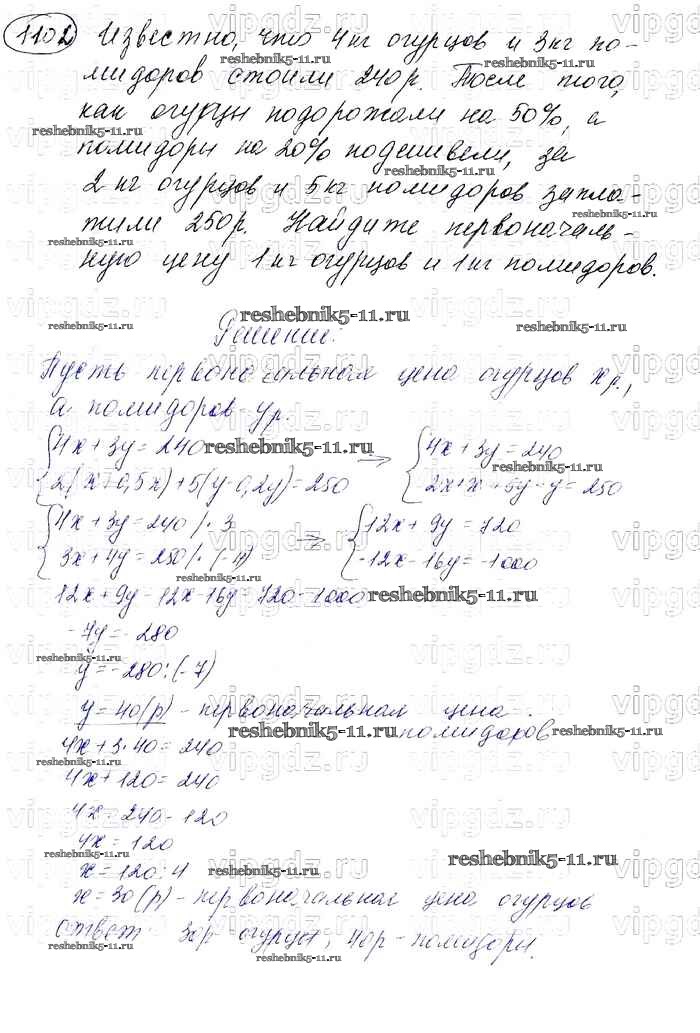 1102 Известно, что 4 кг огурцов и 3 кг по-
мидоров стоили 240 р. После того,
как огурцы подорожали на 50%, а
помидоры на 20% подешевели, за
2 кг огурцов и 5 кг помидоров запла-
тили 250 р. Найдите первоначаль-
ную цену 1 кг огурцов и 1 кг помидоров.
Решение:
Пусть первоначальная цена огурцов x р.,
а помидоров - y р.
{4x + 3y = 240 → {4x + 3y = 240
{2(x+0,5x) + 5(y-0,2y) = 250 {2x+x+5y-y = 250
{4x + 3y = 240 /· 3 → {12x + 9y = 720
{3x + 4y = 250 /· (-4) {-12x - 16y = -1000
12x + 9y - 12x - 16y = 720 - 1000
-7y = -280
y = -280 : (-7)
y = 40 (р) - первоначальная цена
помидоров
4x + 3·40 = 240
4x + 120 = 240
4x = 240 - 120
4x = 120
x = 120 : 4
x = 30 (р) - первоначальная цена огурцов
Ответ: 30р - огурцы, 40р - помидоры.
reshebnik5-11.ru
vipgdz.ru